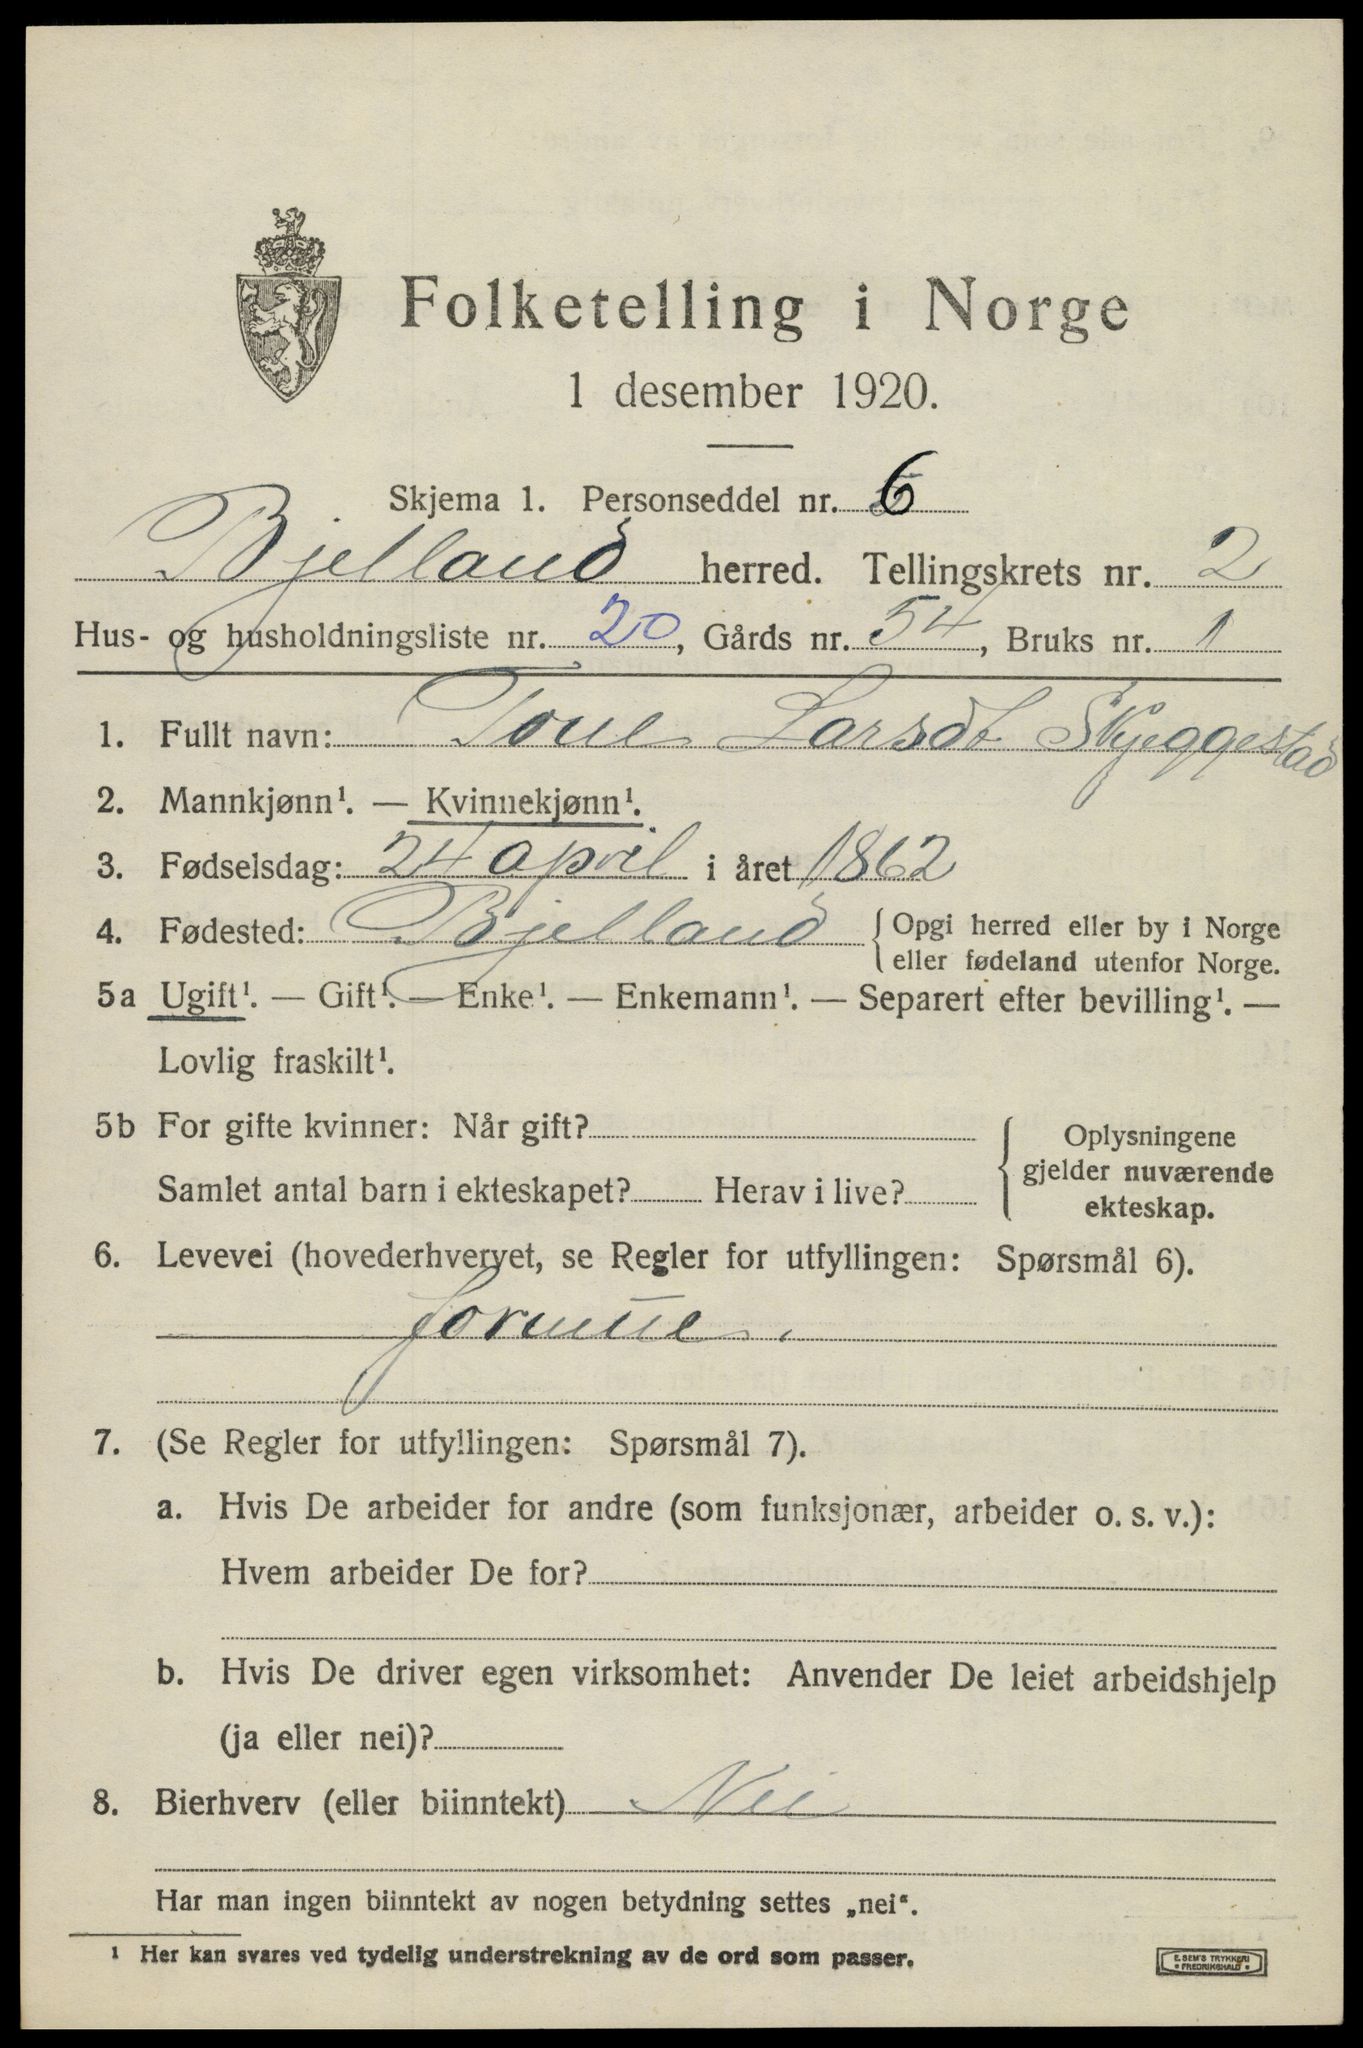 Folketelling i Norge
1 desember 1920.
Skjema 1. Personseddel nr. 6
Bjelland herred. Tellingskrets nr. 2
Hus- og husholdningsliste nr. 20, Gårds nr. 54, Bruks nr. 1
1. Fullt navn: Tone Larsdt Skjeggestad
2. Mannkjønn¹. — Kvinnekjønn¹.
3. Fødselsdag: 24 april i året 1862
4. Fødested: Bjelland { Opgi herred eller by i Norge
eller fødeland utenfor Norge.
5a Ugift¹. — Gift¹. — Enke¹. — Enkemann¹. — Separert efter bevilling¹. —
Lovlig fraskilt¹.
5b For gifte kvinner: Når gift?
Samlet antal barn i ekteskapet? Herav i live?
Oplysningene
gjelder nuværende
ekteskap.
6. Levevei (hovederhvervet, se Regler for utfyllingen: Spørsmål 6).
formue.
7. (Se Regler for utfyllingen: Spørsmål 7).
a. Hvis De arbeider for andre (som funksjonær, arbeider o. s. v.):
Hvem arbeider De for?
b. Hvis De driver egen virksomhet: Anvender De leiet arbeidshjelp
(ja eller nei)?
8. Bierhverv (eller biinntekt) Nei
Har man ingen biinntekt av nogen betydning settes „nei“.
¹ Her kan svares ved tydelig understrekning av de ord som passer.
E. SEM'S TRYKKERI
• FREDRIKSHALD •